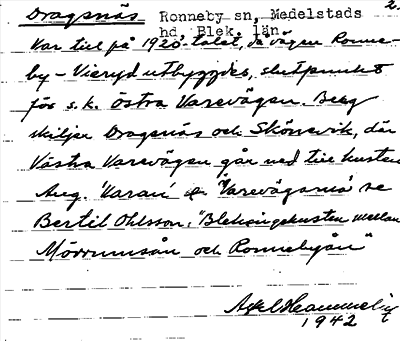 2.
Dragsnäs Ronneby sn, Medelstads
hd, Blek. län
Var till på 1920-talet, då vägen Ronne-
by - Vieryd utbyggdes, slutpunkt
för s.k. östra Varevägen. Berg
skiljer Dragsnäs och Skönevik, där
Västra Varevägen går ned till kusten
Ang. 'Varan' o. "Varevägarna" se
Bertil Ohlsson: "Blekingekusten mellan
Mörrumsån och Ronnebyån"
Axel Hammelin
1942